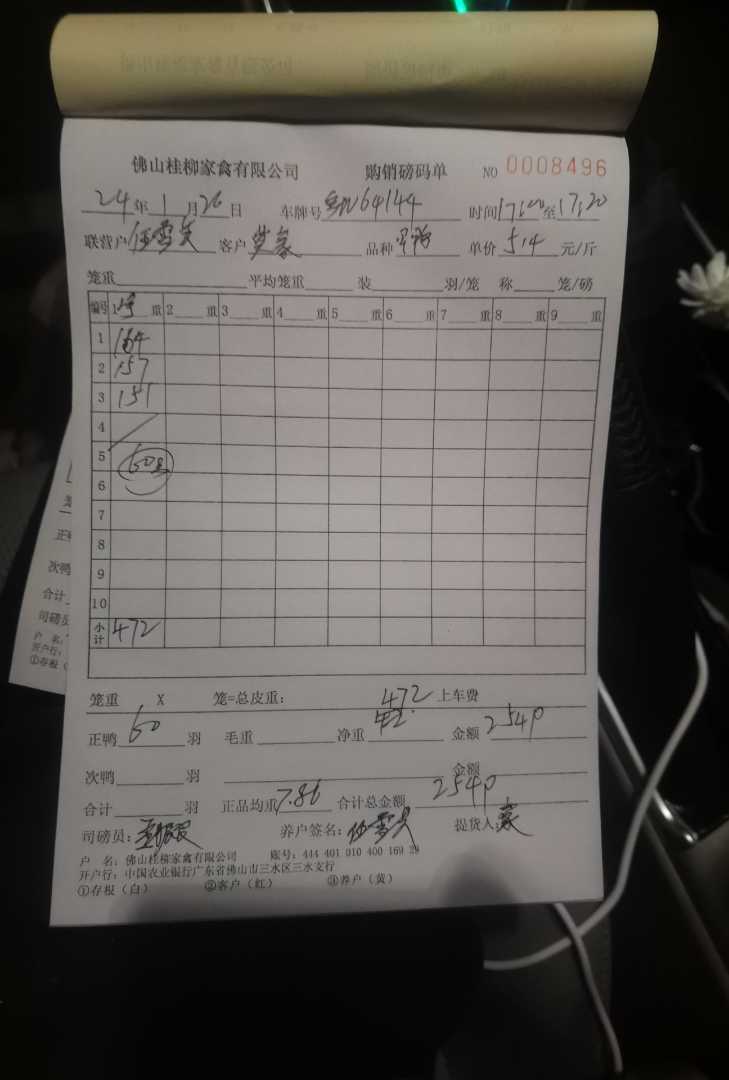 佛山桂柳家禽有限公司 购销磅码单 NO 0008496
24年1月26日 车牌号 64144 时间17:00至17:20
联营户 客户 品种 单价5.4元/斤
笼重 平均笼重 装 羽/笼 称 笼/磅
编号 1 重 2 重 3 重 4 重 5 重 6 重 7 重 8 重 9 重
1 164
2 157
3 151
4
5 60
6
7
8
9
10
小计 472
笼重 X 笼=总皮重: 472 上车费
正鸭 60 羽 毛重 净重 金额 2540
次鸭 羽 金额
合计 羽 正品均重 7.86 合计总金额 2540
司磅员: 养户签名: 提货人:
户 名:佛山桂柳家禽有限公司 账号:444 401 010 400 169 29
开户行:中国农业银行广东省佛山市三水区三水支行
①存根(白) ②客户(红) ③养户(黄)
正
次鸭
合计
司磅员
户 名:
开户行:
①存根(